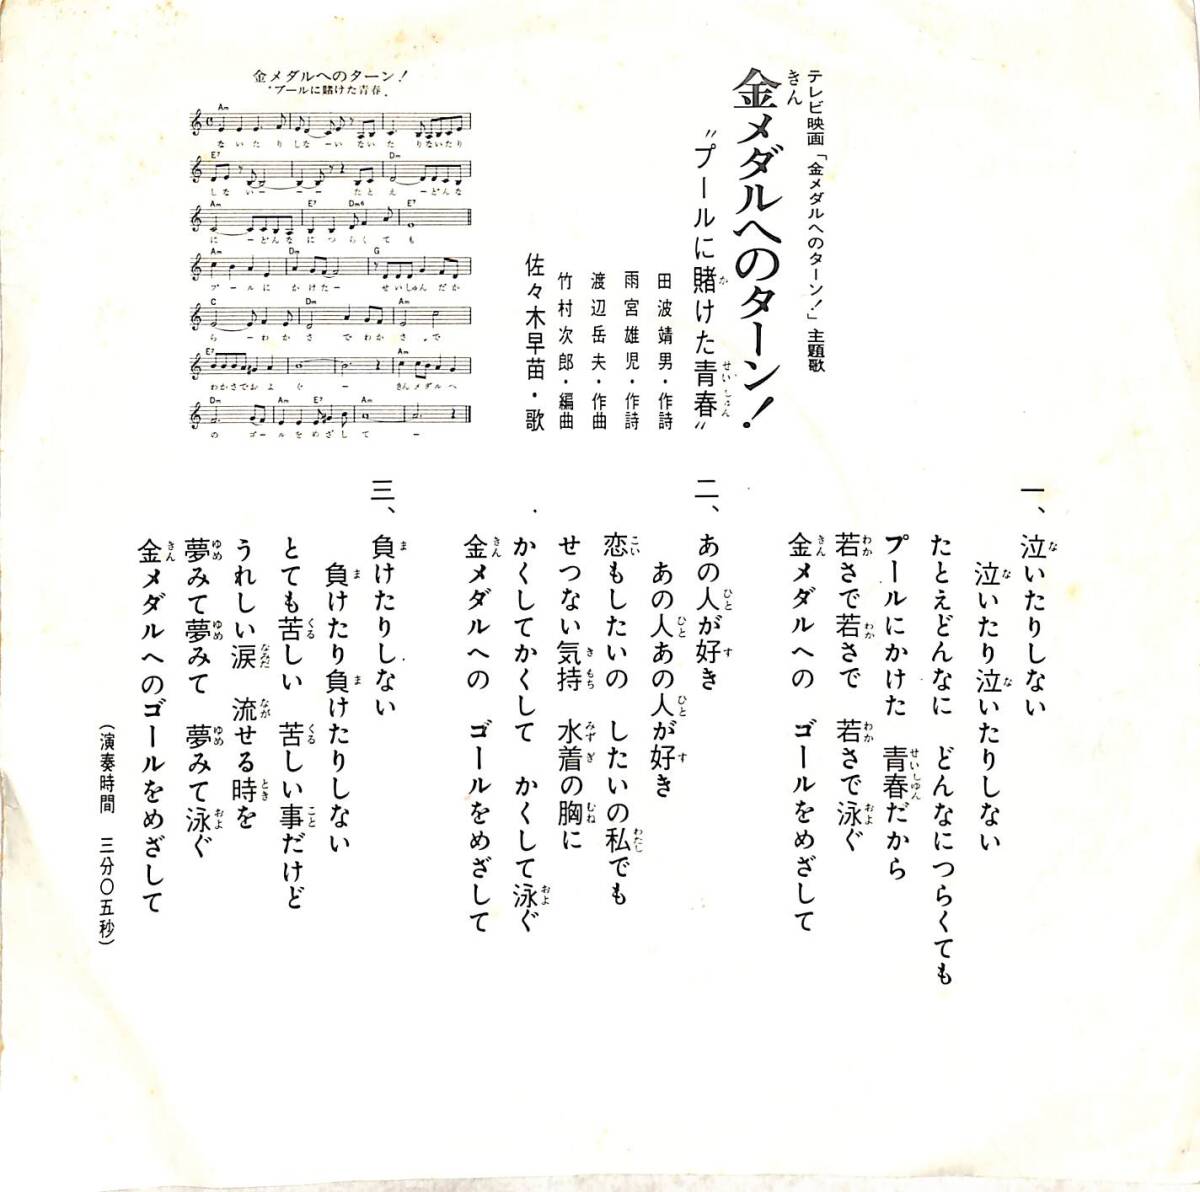 テレビ映画「金メダルへのターン！」主題歌
金メダルへのターン！
きん
〝プールに賭けた青春〟
か
せいしゅん
田波靖男・作詩
雨宮雄児・作詩
渡辺岳夫・作曲
竹村次郎・編曲
佐々木早苗・歌
金メダルへのターン！
〝プールに賭けた青春〟
Am
ないたりしなーい ないた りないたり
E7 Dm
しない－ － － たとえ－どんな
Am E7 Dm6 E7
に－どんなにつらくても
Am Dm G
プールに かけた－ せいしゅんだか
C Dm Am
ら－わかさ でわかさ で
E7 Am
わかさでおよ ぐ － きんメダルへ
Dm Am E7 Am
の ゴールをめざして －
一、泣いたりしない
泣いたり泣いたりしない
たとえどんなに どんなにつらくても
プールにかけた 青春だから
若さで若さで 若さで泳ぐ
金メダルへの ゴールをめざして
二、あの人が好き
あの人あの人が好き
恋もしたいの したいの私でも
せつない気持 水着の胸に
かくしてかくして かくして泳ぐ
金メダルへの ゴールをめざして
三、負けたりしない
負けたり負けたりしない
とても苦しい 苦しい事だけど
うれしい涙 流せる時を
夢みて夢みて 夢みて泳ぐ
金メダルへのゴールをめざして
（演奏時間 三分〇五秒）